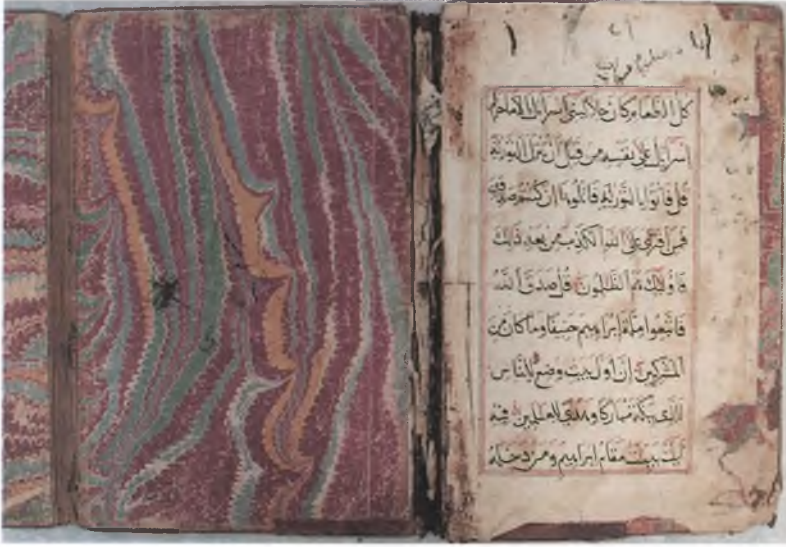 كل الطعام كان حلا لبنى اسرائل الا ما حرم
اسرائل على نفسه من قبل ان تنزل التورية
قل فاتوا بالتورية فاتلوها ان كنتم صدقين
فمن افترى على الله الكذب من بعد ذلك
فاولئك هم الظلمون قل صدق الله
فاتبعوا ملة ابراهيم حنيفا وما كان من
المشركين ان اول بيت وضع للناس
للذى ببكة مباركا وهدى للعلمين فيه
ايت بينت مقام ابراهيم ومن دخله